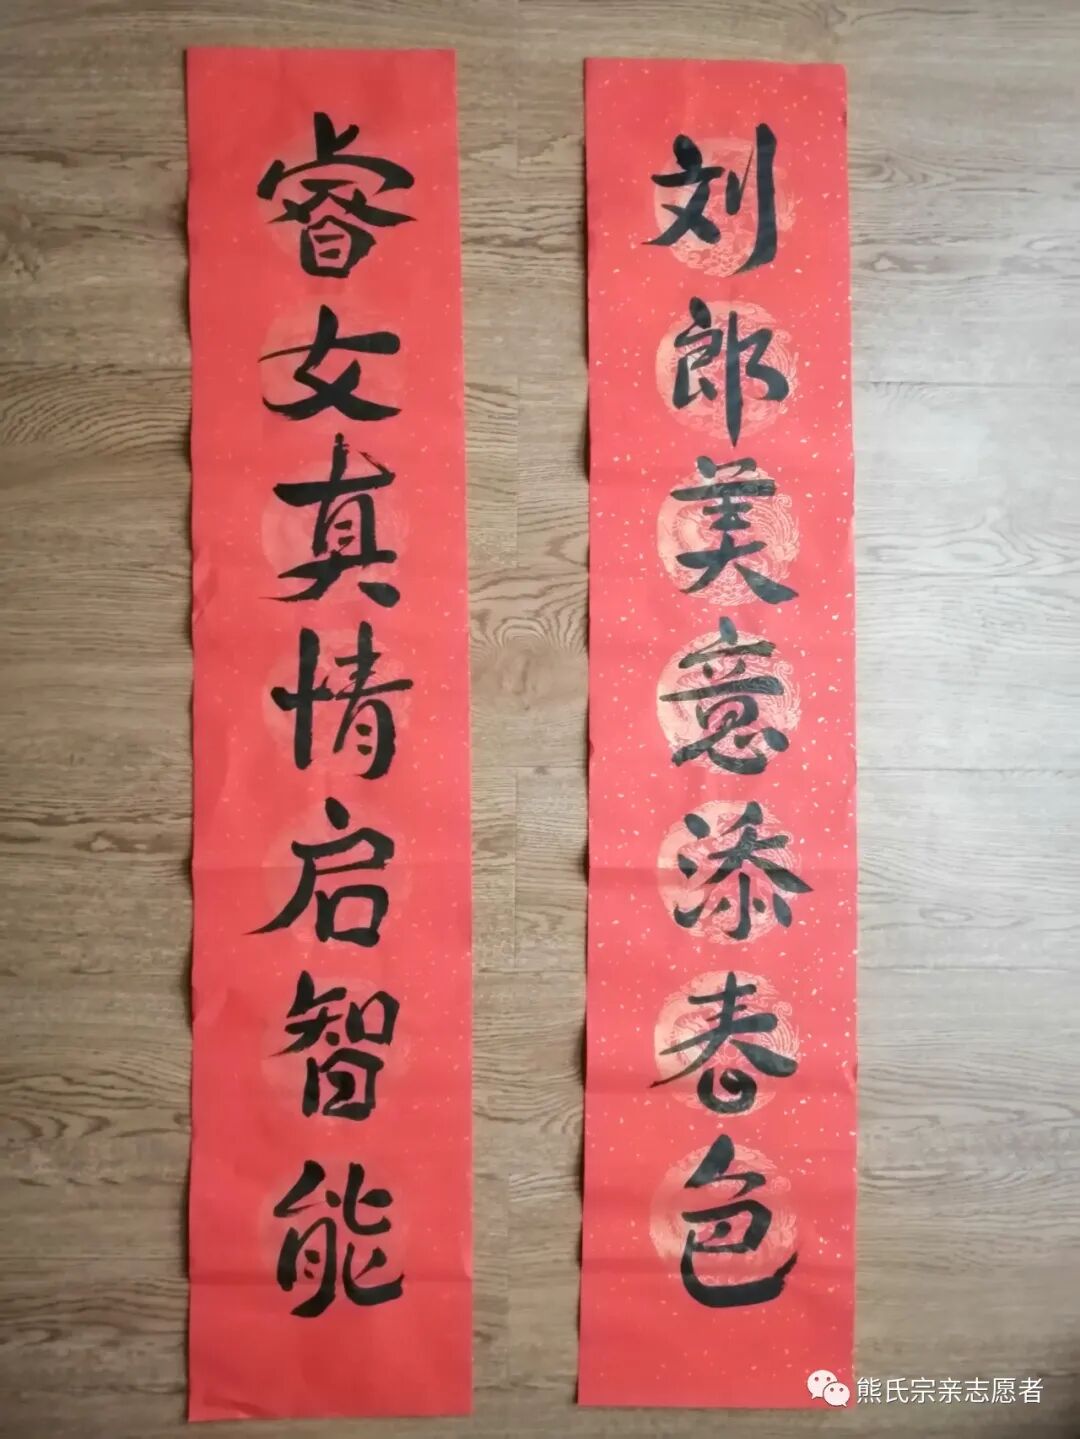 刘郎美意添春色
睿女真情启智能
熊氏宗亲志愿者